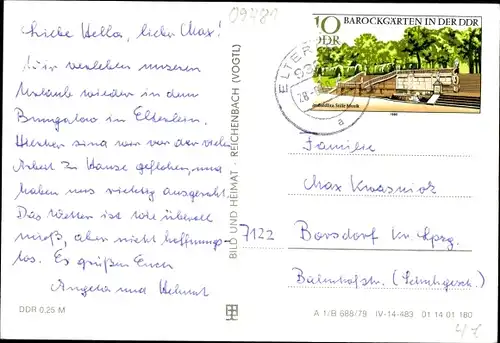 09481
Liebe Hella, lieber Max!
Wir verleben unseren
Urlaub wieder in dem
Bungalow in Elterlein.
Hierher sind wir vor der vielen
Arbeit zu Hause geflohen, und
haben uns richtig ausgeruht.
Das Wetter ist wie überall
mieß, aber nicht hoffnungs-
los. Es grüßen Euch
Angela und Helmut
DDR 0,25 M
BILD UND HEIMAT · REICHENBACH (VOGTL)
10
DDR
BAROCKGÄRTEN IN DER DDR
1980
ELTER
a
Familie
Max Kwasniok
7122 Borsdorf Kr. Lpzg.
Bahnhofstr. (Schuhgesch.)
A 1/B 688/79 IV-14-483 01 14 01 180